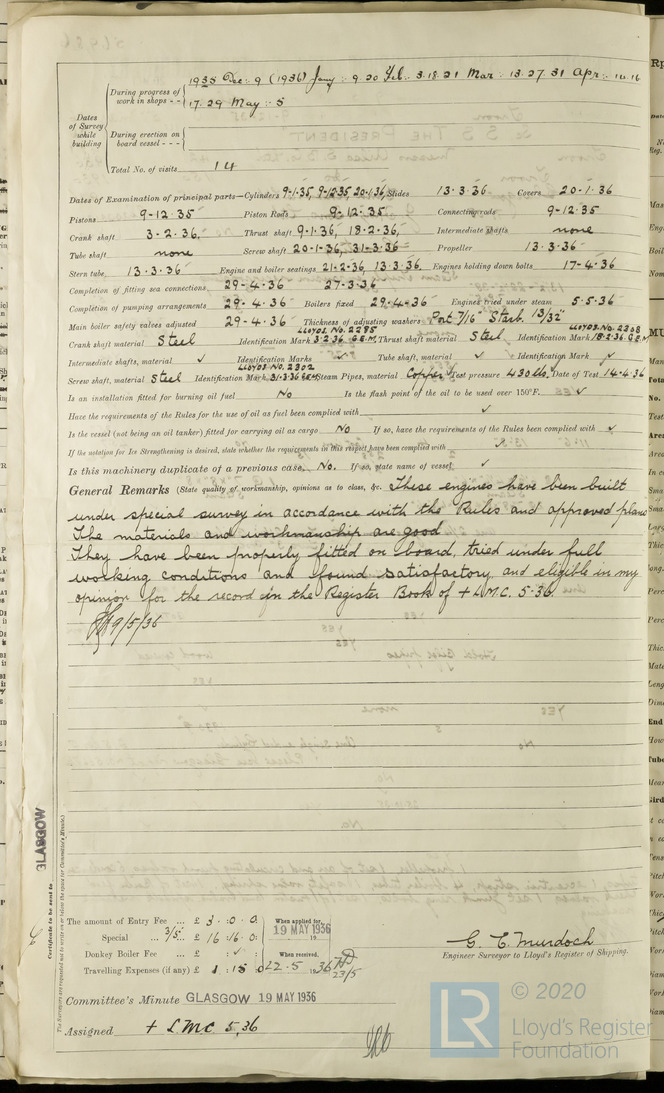 During progress of work in shops - - 1935 Dec: 9 (1936) Jany: 9. 20 Feb: 3. 18. 21 Mar: 13. 27. 31 Apr: 14. 16
17. 29 May: 5
Dates of Survey while building
During erection on board vessel - - -
Total No. of visits 14
Dates of Examination of principal parts—Cylinders 9-1-35, 9-12-35 20-1-36, Slides 13-3-36 Covers 20-1-36
Pistons 9-12-35 Piston Rods 9-12-35 Connecting rods 9-12-35
Crank shaft 3-2-36, Thrust shaft 9-1-36, 18-2-36, Intermediate shafts none
Tube shaft none Screw shaft 20-1-36, 31-3-36 Propeller 13-3-36
Stern tube 13-3-36 Engine and boiler seatings 21-2-36, 13-3-36, Engines holding down bolts 17-4-36
Completion of fitting sea connections 29-4-36 27-3-36
Completion of pumping arrangements 29-4-36 Boilers fixed 29-4-36 Engines tried under steam 5-5-36
Main boiler safety valves adjusted 29-4-36 Thickness of adjusting washers Port 7/16" Starb. 13/32"
Crank shaft material Steel Identification Mark LLOYDS NO. 2285 3-2-36 G.E.M. Thrust shaft material Steel Identification Mark LLOYDS NO. 2358 18-2-36 G.E.M.
Intermediate shafts, material ✓ Identification Marks ✓ Tube shaft, material ✓ Identification Mark ✓
Screw shaft, material Steel Identification Mark LLOYDS NO. 2302 31-3-36 G.E.M. Steam Pipes, material Copper Test pressure 430 lbs. Date of Test 14-4-36
Is an installation fitted for burning oil fuel No Is the flash point of the oil to be used over 150°F. ✓
Have the requirements of the Rules for the use of oil as fuel been complied with ✓
Is the vessel (not being an oil tanker) fitted for carrying oil as cargo No If so, have the requirements of the Rules been complied with ✓
If the notation for Ice Strengthening is desired, state whether the requirements in this respect have been complied with ✓
Is this machinery duplicate of a previous case No. If so, state name of vessel ✓
General Remarks (State quality of workmanship, opinions as to class, &c. These engines have been built
under special survey in accordance with the Rules and approved plans
The materials and workmanship are good
They have been properly fitted on board, tried under full
working conditions and found satisfactory, and eligible in my
opinion for the record in the Register Book of + L.M.C. 5.36.
9/5/36
GLASGOW
Certificate to be sent to
(The Surveyors are requested not to write on or below the space for Committee's Minute.)
The amount of Entry Fee ... £ 3 : 0 : 0 When applied for, 19 MAY 1936
Special ... 3/5 ... £ 16 : 16 : 0
Donkey Boiler Fee ... £ : ✓ : When received,
Travelling Expenses (if any) £ 22.5.1936 23/5
G. E. Murdoch
Engineer Surveyor to Lloyd's Register of Shipping.
Committee's Minute GLASGOW 19 MAY 1936
Assigned + L.M.C. 5,36
LR
© 2020
Lloyd's Register
Foundation